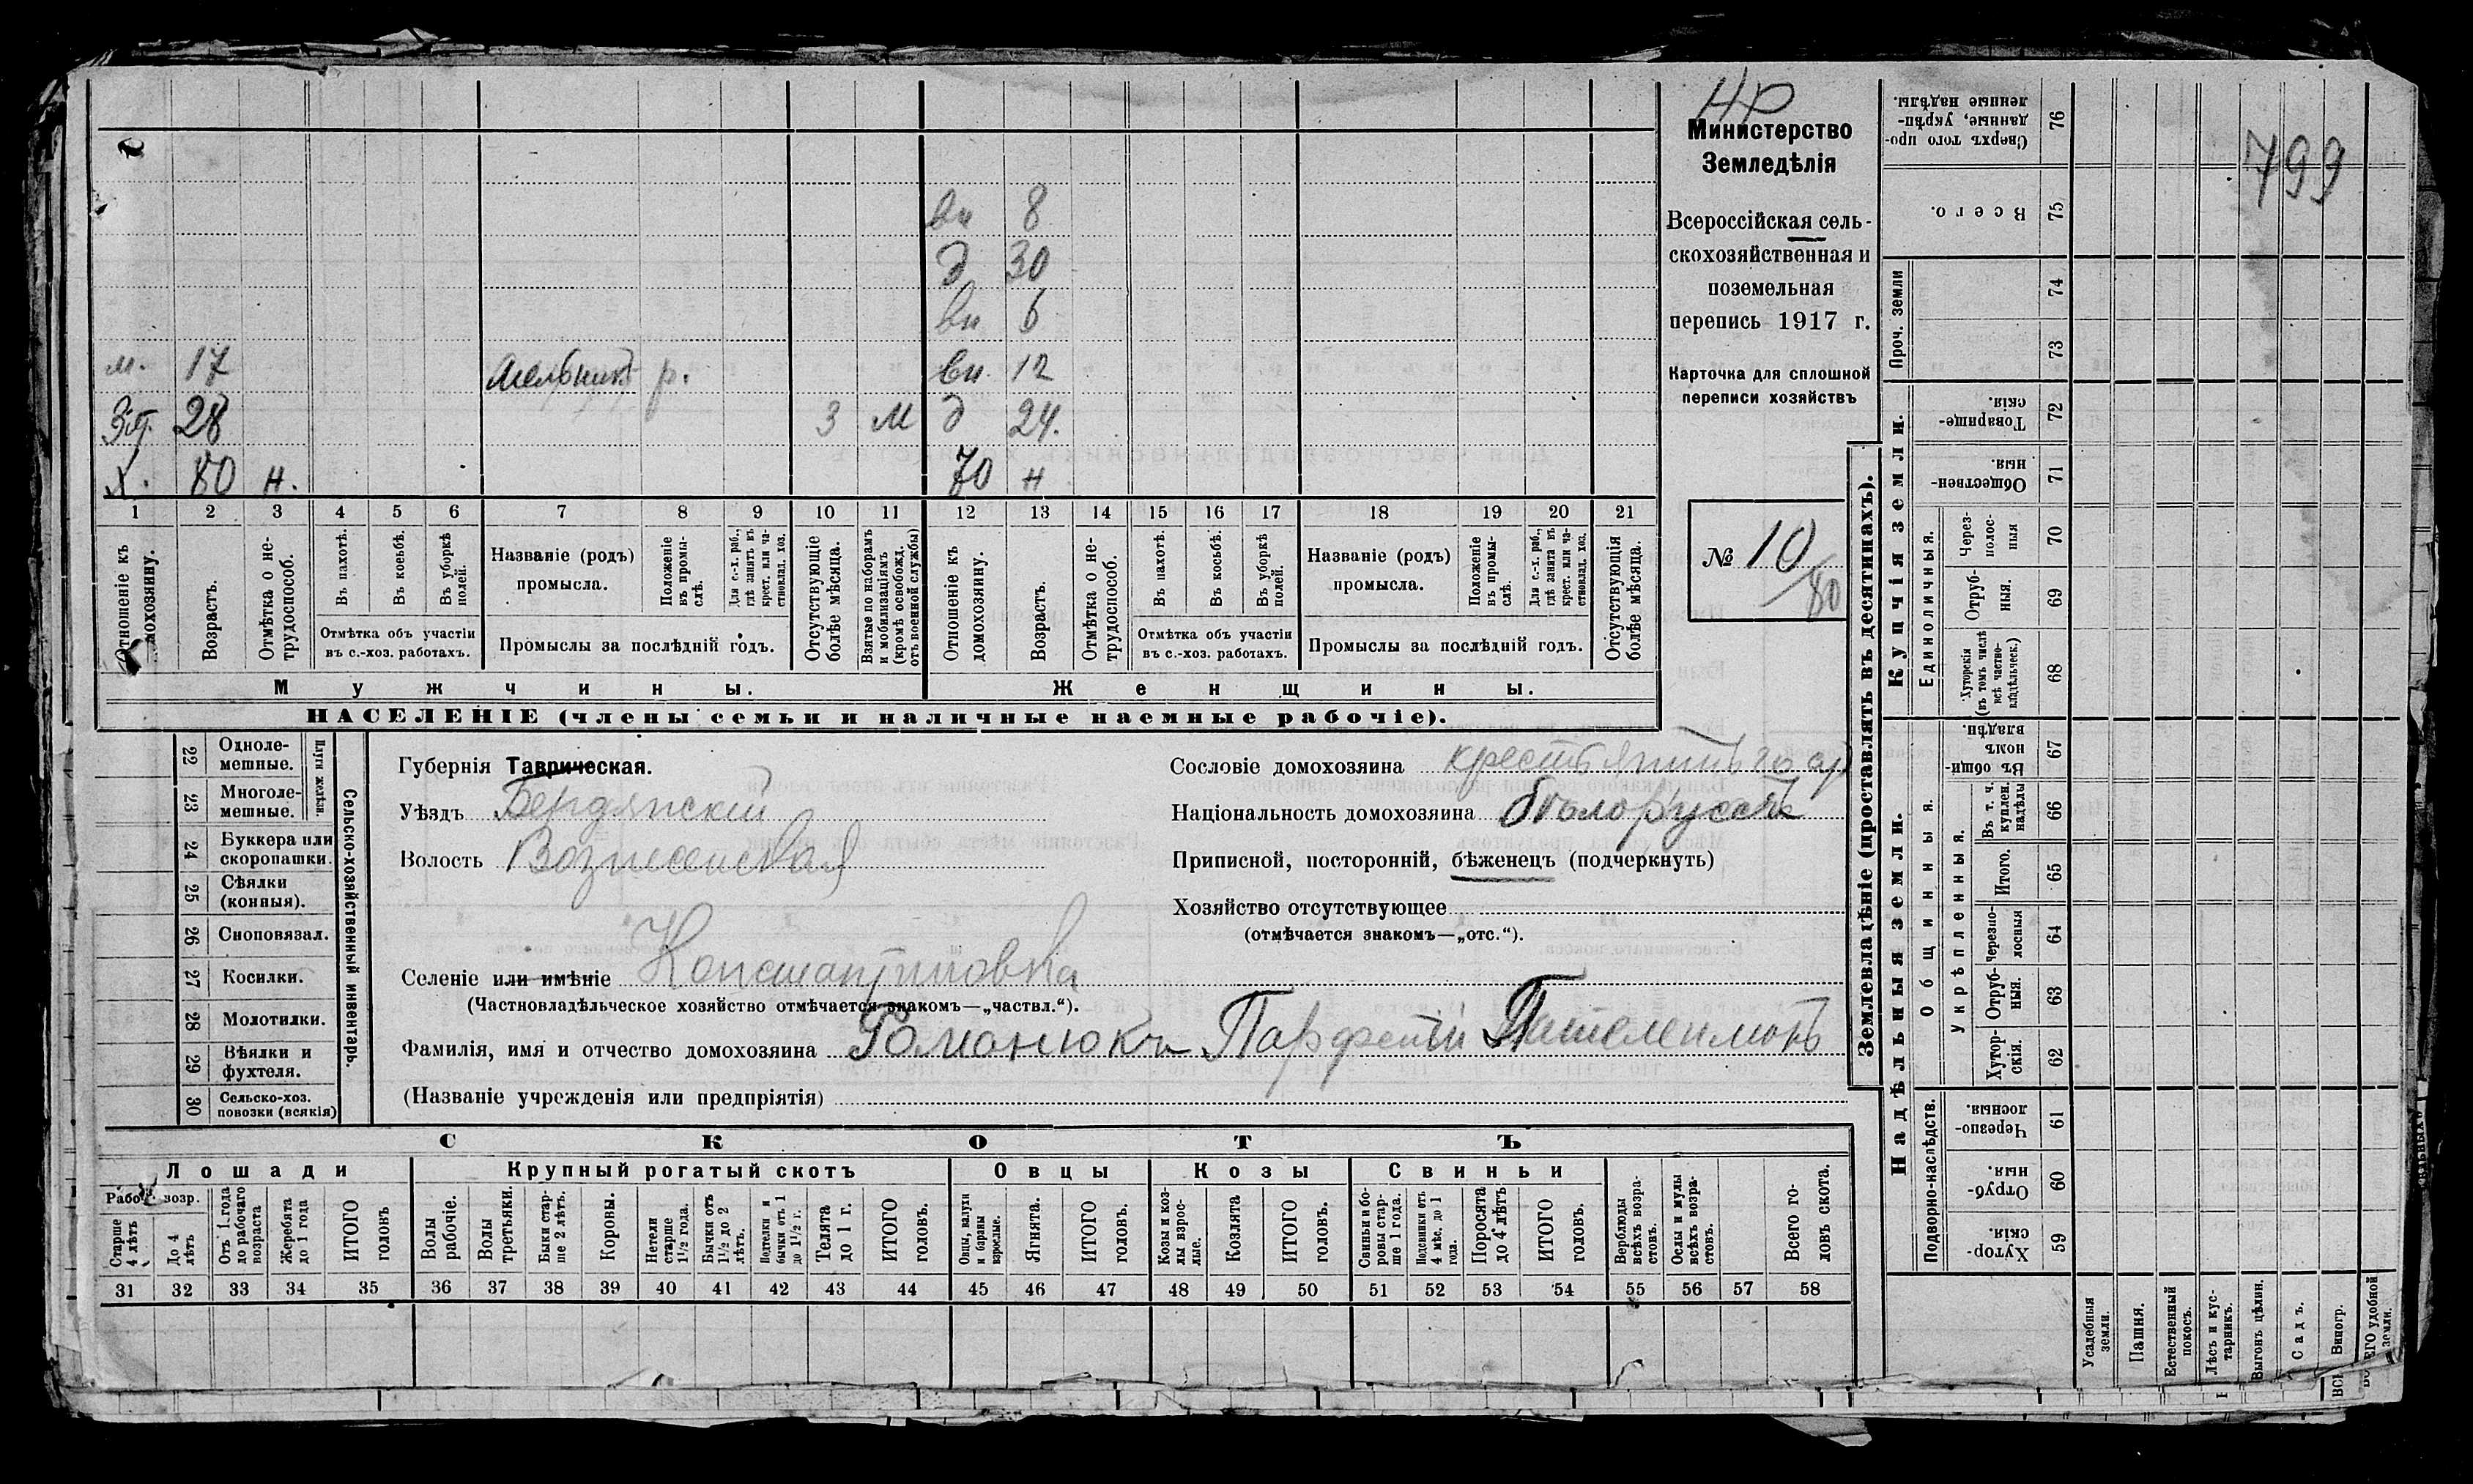 НР
Министерство
Земледѣлія
Всероссійская сель-
скохозяйственная и
поземельная
перепись 1917 г.
Карточка для сплошной
переписи хозяйствъ
№ 10
/80
799
вн 8
д 30
вн 6
м. 17 мельникъ р. вн. 12
Зят. 28 3 м д 24.
Х. 80 н. 70 н
1 2 3 4 5 6 7 8 9 10 11 12 13 14 15 16 17 18 19 20 21
Отношеніе къ домохозяину.
Возрастъ.
Отмѣтка о не-
трудоспособ.
Въ пахотѣ.
Въ косьбѣ.
Въ уборкѣ
полей.
Отмѣтка объ участіи
въ с.-хоз. работахъ.
Названіе (родъ)
промысла.
Положеніе
въ промы-
слѣ.
Для с.-х. раб.,
гдѣ занятъ въ
крест. или ча-
стновлад. хоз.
Промыслы за послѣдній годъ.
Отсутствующіе
болѣе мѣсяца.
Взятые по наборамъ
и мобилизаціямъ
(кромѣ освобожд.
отъ военной службы)
Отношеніе къ
домохозяину.
Возрастъ.
Отмѣтка о не-
трудоспособ.
Въ пахотѣ.
Въ косьбѣ.
Въ уборкѣ
полей.
Отмѣтка объ участіи
въ с.-хоз. работахъ.
Названіе (родъ)
промысла.
Положеніе
въ промы-
слѣ.
Для с.-х. раб.,
гдѣ занята въ
крест. или ча-
стновлад. хоз.
Промыслы за послѣдній годъ.
Отсутствующія
болѣе мѣсяца.
Мужчины.
Женщины.
НАСЕЛЕНІЕ (члены семьи и наличные наемные рабочіе).
22 Одноле-
мешные.
23 Многоле-
мешные.
Плуги желѣзн.
24 Буккера или
скоропашки.
25 Сѣялки
(конныя).
26 Сноповязал.
27 Косилки.
28 Молотилки.
29 Вѣялки и
фухтеля.
30 Сельско-хоз.
повозки (всякія)
Сельско-хозяйственный инвентарь.
Губернія Таврическая.
Уѣздъ Бердянскій
Волость Вознесенская
Селеніе или имѣніе Константиновка
(Частновладѣльческое хозяйство отмѣчается знакомъ—„частвл.“).
Фамилія, имя и отчество домохозяина Романюкъ Парфетій Пателемонъ
(Названіе учрежденія или предпріятія)
Сословіе домохозяина крестьянинъ
Національность домохозяина бѣлоруссъ
Приписной, посторонній, бѣженецъ (подчеркнуть)
Хозяйство отсутствующее
(отмѣчается знакомъ—„отс.“).
СКОТЪ
Лошади
Крупный рогатый скотъ
Овцы
Козы
Свиньи
Рабоч. возр.
Старше
4 лѣтъ
До 4
лѣтъ
Отъ 1 года
до рабочаго
возраста
Жеребята
до 1 года
ИТОГО
головъ
Волы
рабочіе.
Волы
третьяки.
Быки стар-
ше 2 лѣтъ.
Коровы.
Нетели
старше
1½ года.
Бычки отъ
1½ до 2
лѣтъ.
Подтелки и
бычки отъ 1
до 1½ г.
Телята
до 1 г.
ИТОГО
головъ.
Овцы, валухи
и бараны
взрослые.
Ягнята.
ИТОГО
головъ.
Козы и коз-
лы взрос-
лые.
Козлята
ИТОГО
головъ.
Свиньи и бо-
ровы стар-
ше 1 года.
Подсвинки отъ
4 мѣс. до 1
года.
Поросята
до 4 лѣтъ
ИТОГО
головъ.
Верблюды
всѣхъ возра-
стовъ.
Ослы и мулы
всѣхъ возра-
стовъ.
Всего го-
ловъ скота.
31 32 33 34 35 36 37 38 39 40 41 42 43 44 45 46 47 48 49 50 51 52 53 54 55 56 57 58
Землевладѣніе (проставлять въ десятинахъ).
Надѣльныя земли.
Купчія земли.
Проч. земли
Сверхъ того про-
данные, укрѣп-
ленные надѣлы.
76
Всего.
75
74
73
Товарище-
скія.
72
Обществен-
ныя.
71
Единоличныя.
Через-
полос-
ныя
70
Отруб-
ныя.
69
Хуторскія
(въ томъ числѣ
всѣ частно-
владѣльческ.)
68
Общинныя.
Въ общин-
номъ
владѣн.
67
Укрѣпленныя.
Въ т. ч.
куплен.
надѣлы
66
Итого.
65
Черезпо-
лосныя
64
Отруб-
ныя.
63
Хутор-
скія.
62
Подворно-наслѣдств.
Черезпо-
лосныя.
61
Отруб-
ныя.
60
Хутор-
скія.
59
Усадебныя
земли.
Пашня.
Естественный
покосъ.
Лѣсъ и кус-
тарникъ.
Выгонъ цѣлин.
Садъ.
Виногр.
ЕГО удобной
земли.